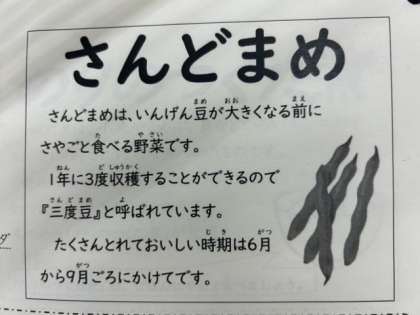 さんどまめ
さんどまめは、いんげん豆が大きくなる前に
さやごと食べる野菜です。
1年に3度収穫することができるので
『三度豆』と呼ばれています。
たくさんとれておいしい時期は6月
から9月ごろにかけてです。